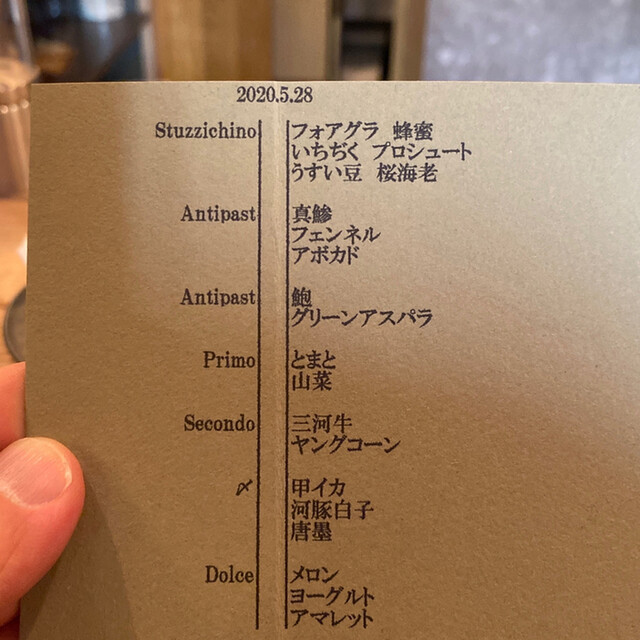 2020.5.28
Stuzzichino フォアグラ 蜂蜜
いちぢく プロシュート
うすい豆 桜海老
Antipast 真鯵
フェンネル
アボカド
Antipast 鮑
グリーンアスパラ
Primo とまと
山菜
Secondo 三河牛
ヤングコーン
〆 甲イカ
河豚白子
唐墨
Dolce メロン
ヨーグルト
アマレット